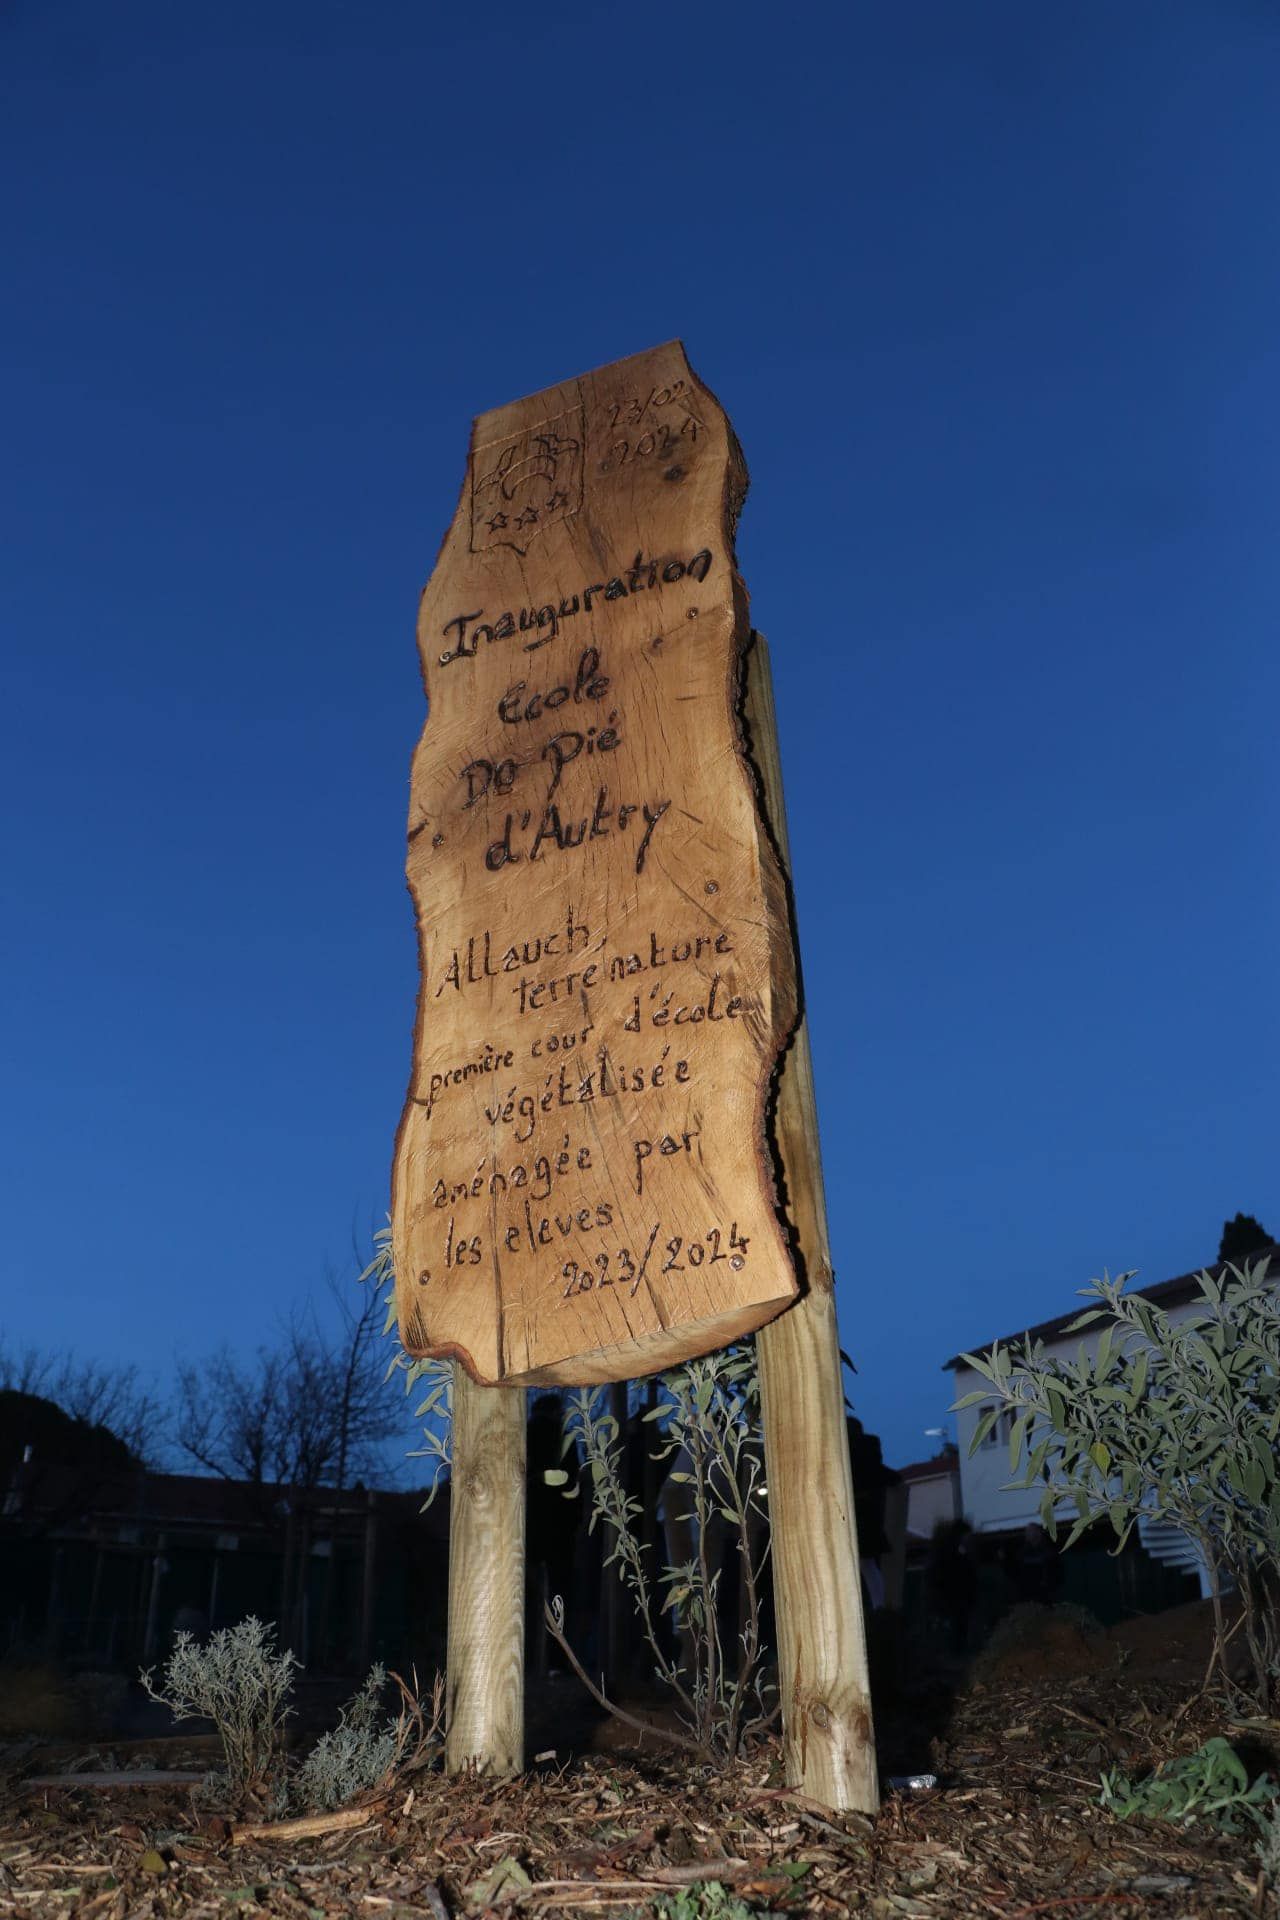 23/02
2024
Inauguration
école
De Pié
d'Autry
Allauch
terre nature
première cour d'école
végétalisée
aménagée par
les eleves
2023/2024